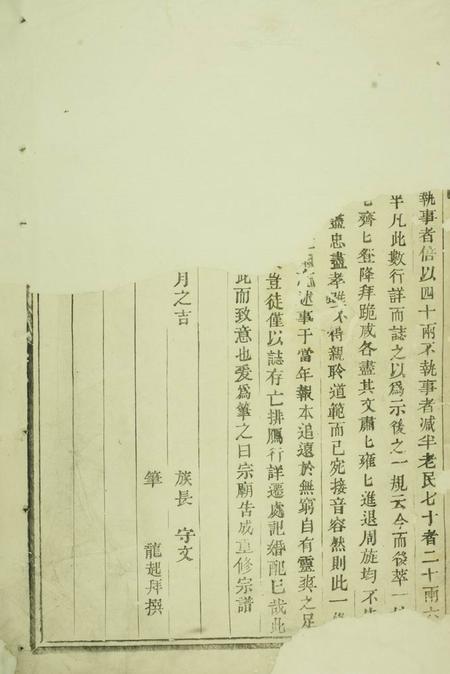 執事者倍以四十兩不執事者减半老民七十者二十兩
半凡此數行詳而誌之以爲示後之一規云今而後萃一
齊匕登降拜跪咸各盡其文肅匕雍匕進退周旋均不
盡忠盡孝雖不得親聆道範而已宛接音容然則此一
述事于當年報本追遠於無窮自有靈爽之足
豈徒僅以誌存亡排鴈行詳遷處記婚配已哉此
此而致意也爰爲筆之曰宗廟告成重修宗譜
月之吉
族長 守文
筆 龍起拜撰